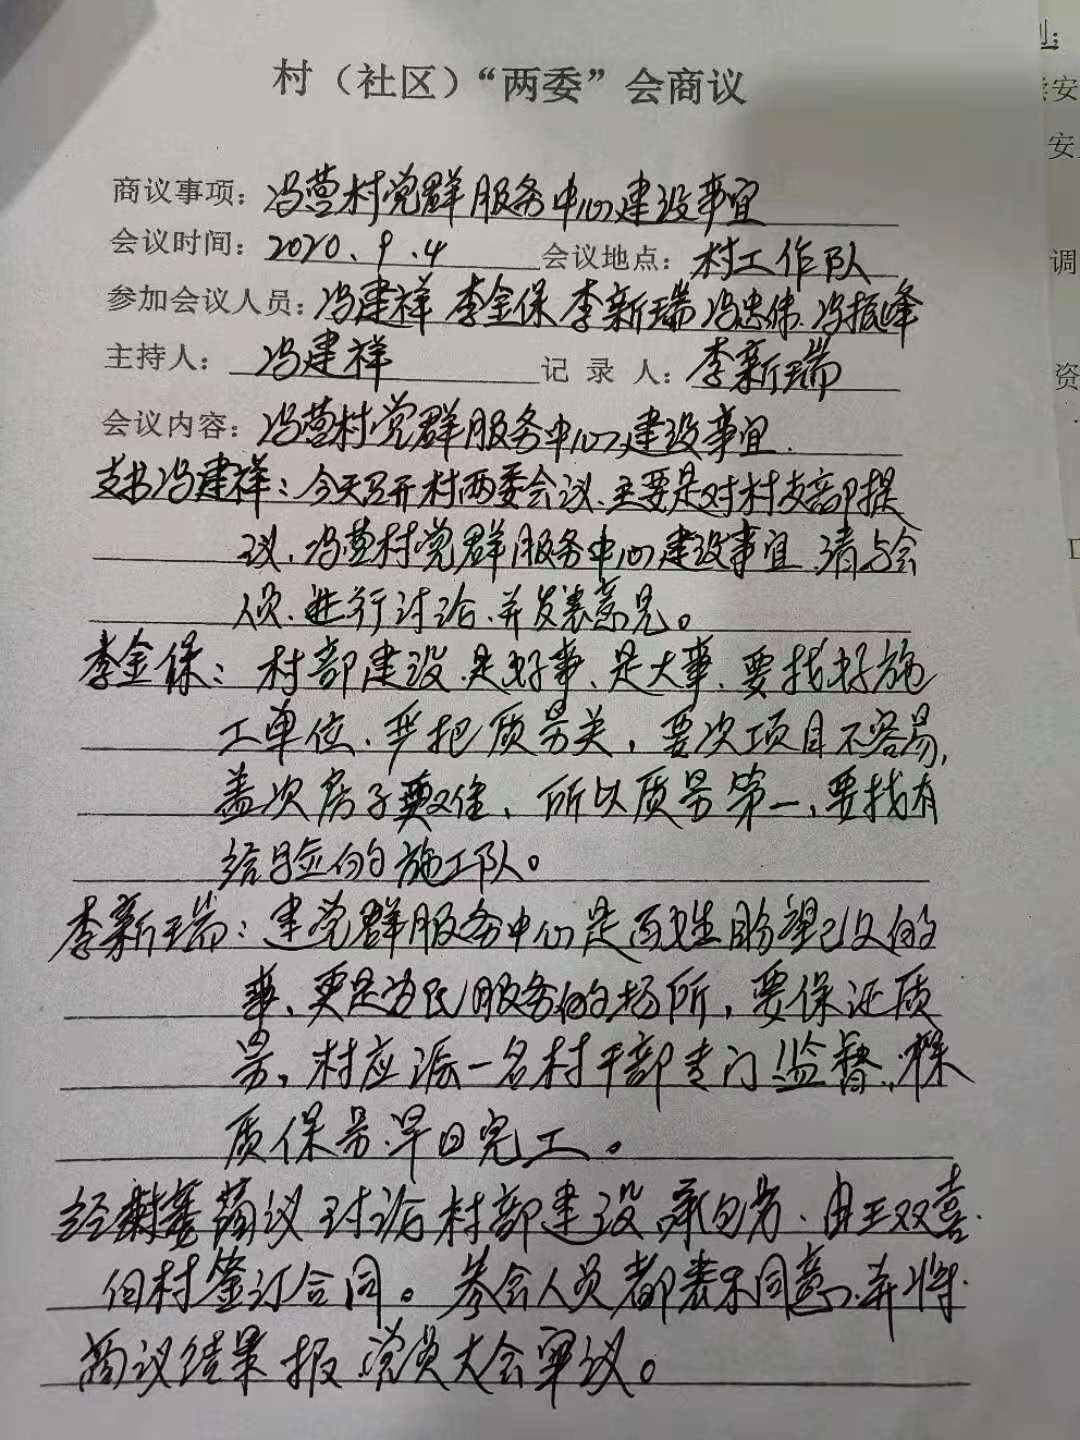 村（社区）“两委”会商议
商议事项：冯营村党群服务中心建设事宜
会议时间：2020.9.4 会议地点：村工作队
参加会议人员：冯建祥 李金保 李新瑞 冯忠伟 冯振峰
主持人：冯建祥 记录人：李新瑞
会议内容：冯营村党群服务中心建设事宜.
支书冯建祥：今天召开村两委会议、主要是对村支部提
议、冯营村党群服务中心建设事宜、请与会
人员、进行讨论、并发表意见。
李金保：村部建设、是好事、是大事、要找好施
工单位、严把质量关，要次项目不容易，
盖次房子更难、所以质量第一、要找有
经验的施工队。
李新瑞：建党群服务中心是百姓盼望已久的
事、更是为民服务的场所，要保证质
量，村应派一名村干部专门监督、
质保量、早日完工。
经 商议讨论村部建设承包方、由王双喜
村签订合同。参会人员都表示同意、并将
商议结果报党员大会审议。
安
安
调
资